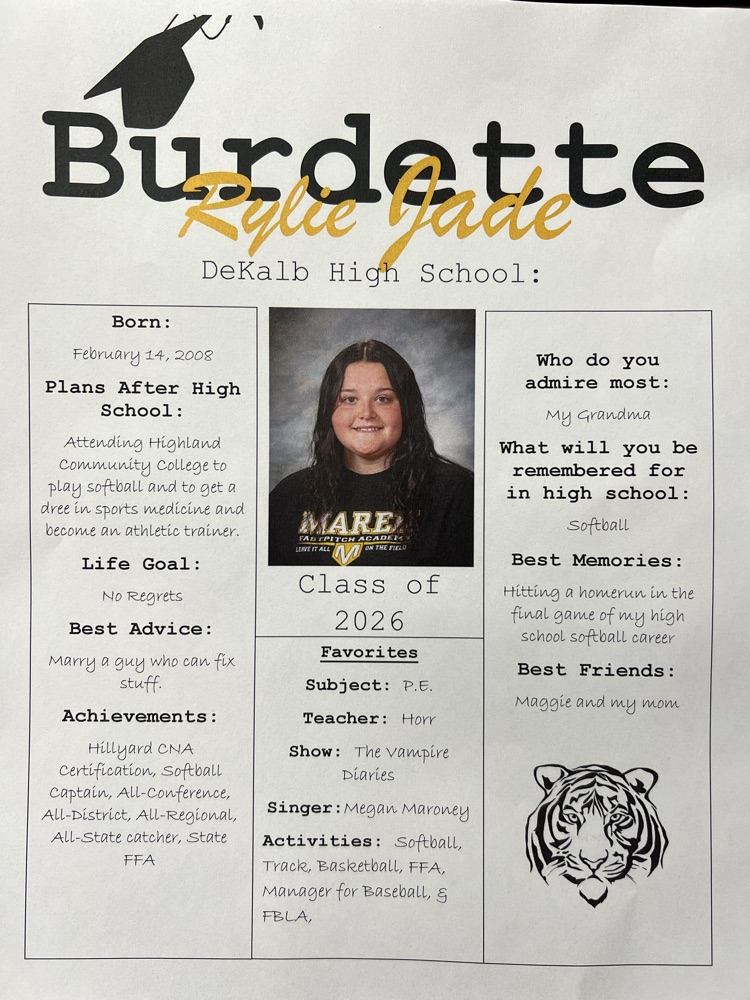 Burdette
Rylie Jade
DeKalb High School:
Born:
February 14, 2008
Plans After High
School:
Attending Highland
Community College to
play softball and to get a
dree in sports medicine and
become an athletic trainer.
Life Goal:
No Regrets
Best Advice:
Marry a guy who can fix
stuff.
Achievements:
Hillyard CNA
Certification, Softball
Captain, All-Conference,
All-District, All-Regional,
All-State catcher, State
FFA
FASTPITCH ACADEMY
LEAVE IT ALL M ON THE FIELD
Class of
2026
Favorites
Subject: P.E.
Teacher: Horr
Show: The Vampire
Diaries
Singer:Megan Maroney
Activities: Softball,
Track, Basketball, FFA,
Manager for Baseball, &
FBLA,
Who do you
admire most:
My Grandma
What will you be
remembered for
in high school:
Softball
Best Memories:
Hitting a homerun in the
final game of my high
school softball career
Best Friends:
Maggie and my mom